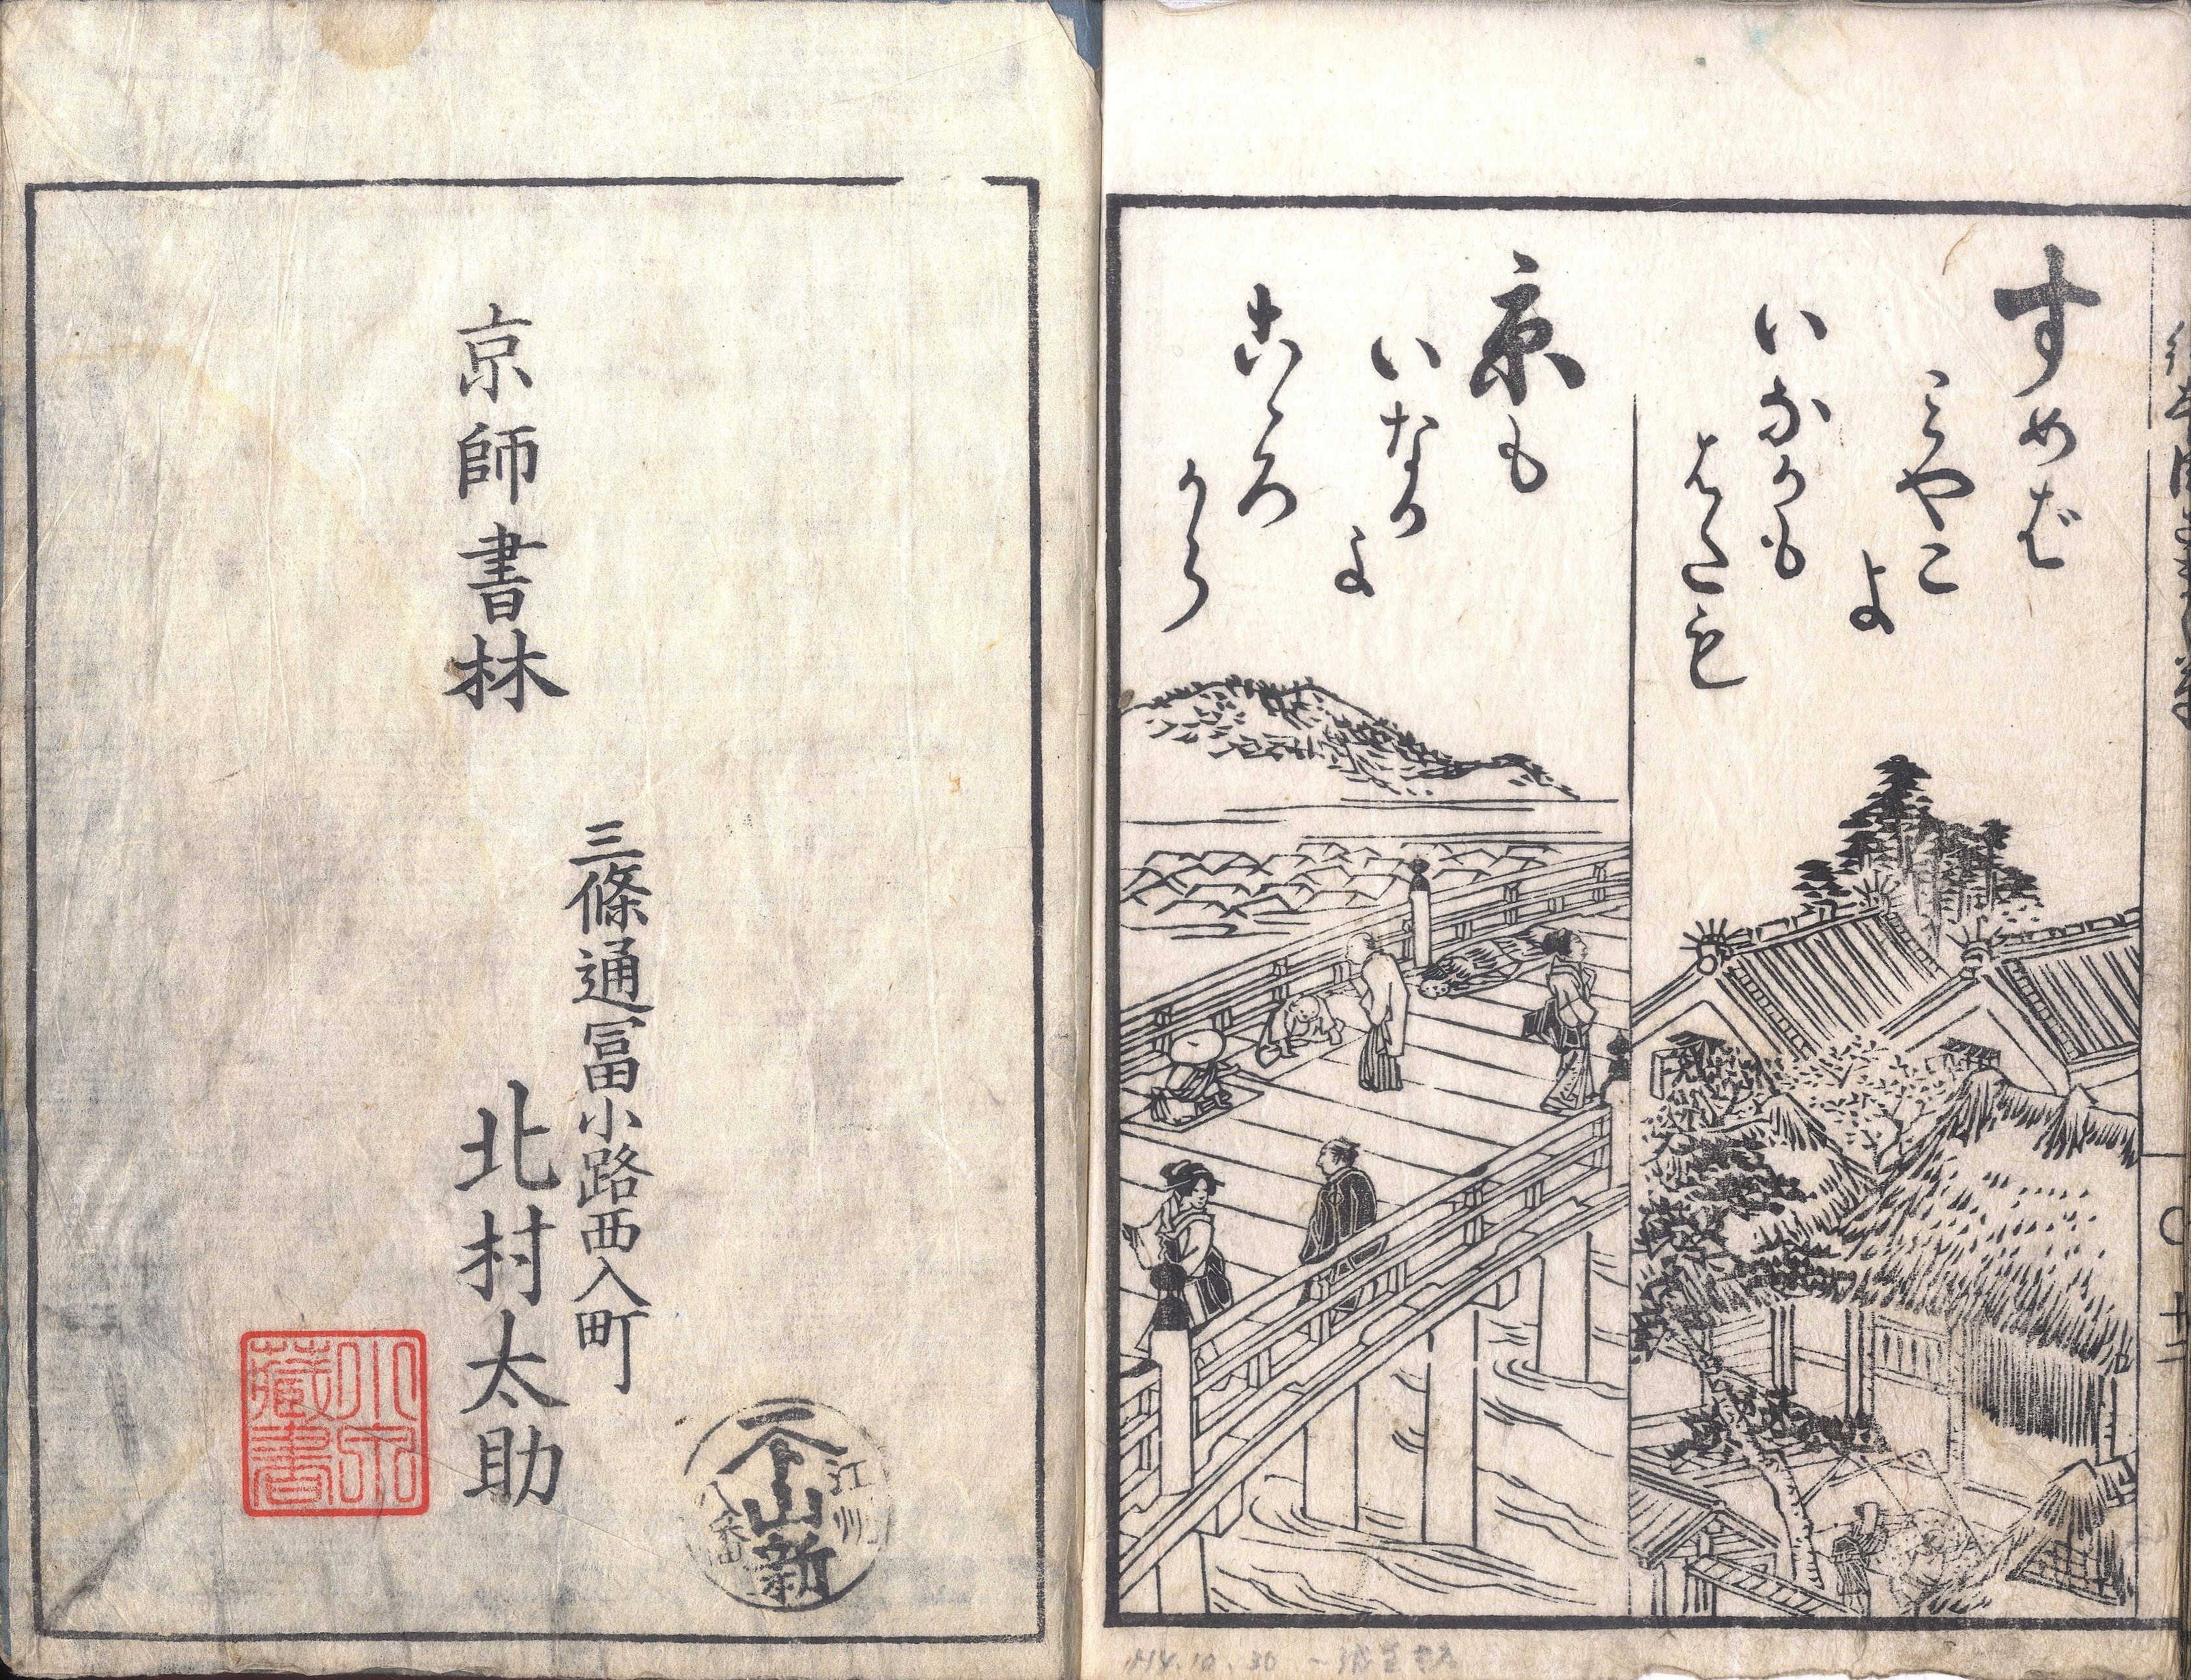 すめば
ミやこ
よ
いなかも
京も
いなか
よ
こゝろ
から
京師書林
三條通冨小路西入町
北村太助
山新
江州
藏書